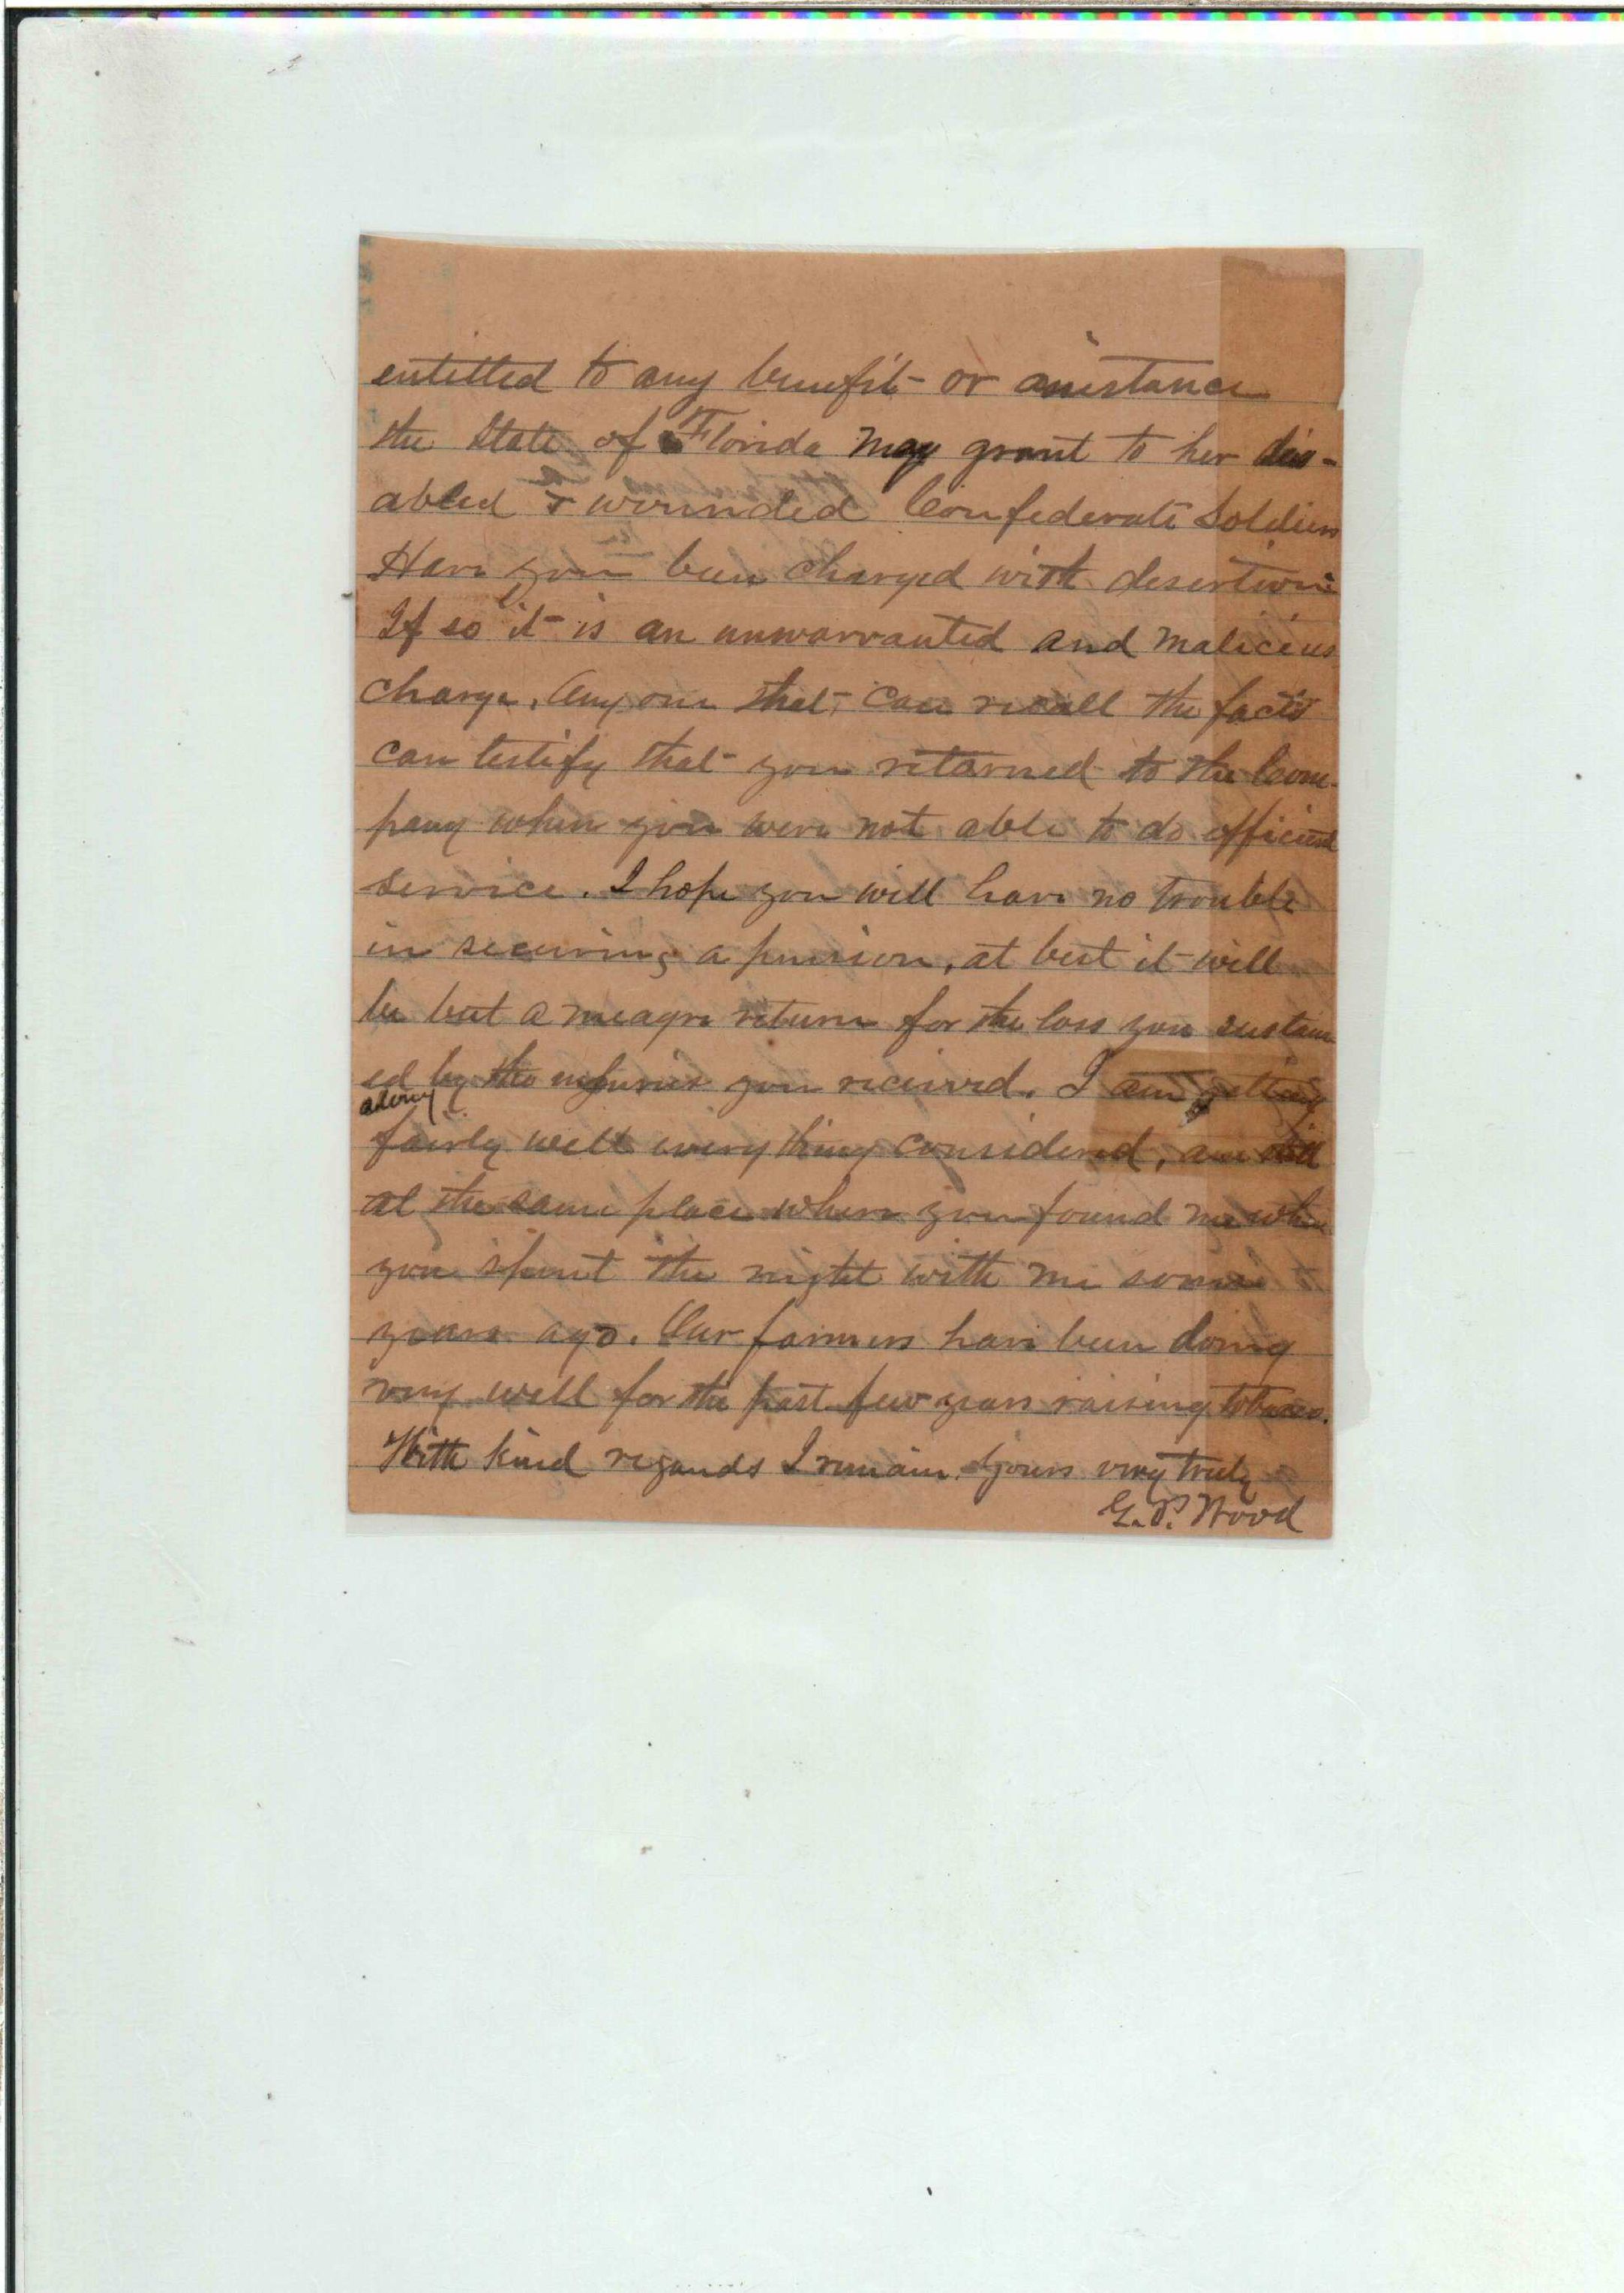 entitled to any benefit or assistance
the State of Florida may grant to her dis-
abled & wounded Confederate Soldiers
Have you been charged with desertion
If so it is an unwarranted and malicious
charge. Any one that can recall the facts
can testify that you returned to the Com-
pany when you were not able to do efficient
service. I hope you will have no trouble
in securing a pension, at best it will
be but a meagre return for the loss you sustain
ed by the injuries you received. I am getting
along
fairly well every thing considered, am still
at the same place where you found me when
you spent the night with me some
years ago. Our farmers have been doing
very well for the past few years raising tobacco.
With kind regards I remain yours very truly
G. P. Wood